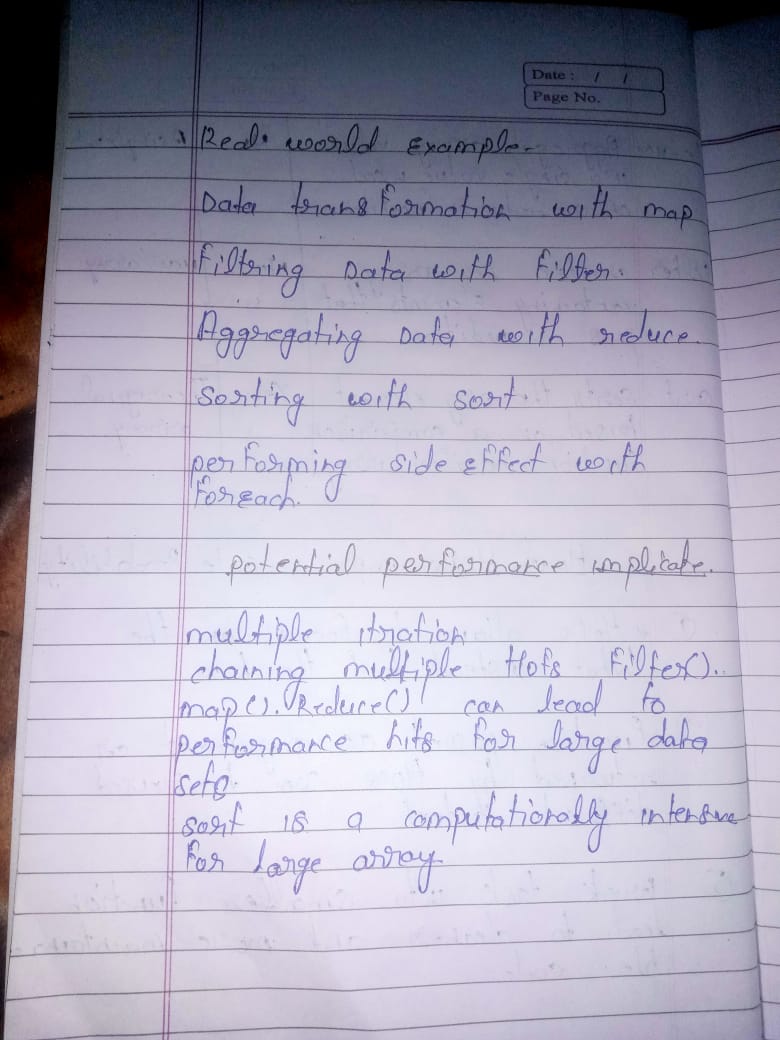 Date : / /
Page No.
Real. world Example.
Data transformation with map
filtering Data with filter.
Aggregating Data with reduce.
Sorting with sort.
performing side effect with
foreach.
potential performance implicate.
multiple itration
chaining multiple Hofs filter().
map().Reduce() can lead to
performance hits for large data
sets.
sort is a computationally intensive
for large array.